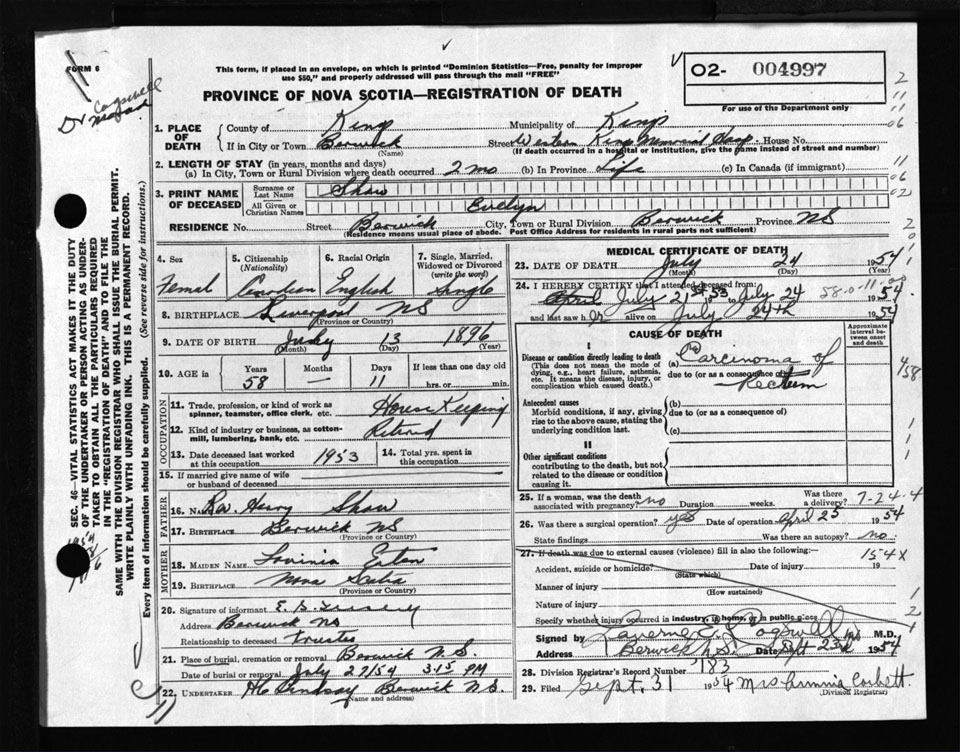 FORM 6
Dr Cogswell
This form, if placed in an envelope, on which is printed "Dominion Statistics—Free, penalty for improper
use $50," and properly addressed will pass through the mail "FREE"
O2- 004997
For use of the Department only
PROVINCE OF NOVA SCOTIA—REGISTRATION OF DEATH
1. PLACE OF DEATH
County of Kings Municipality of Kings
If in City or Town Berwick Street Western Kings Memorial Hosp House No.
(Name) (If death occurred in a hospital or institution, give the name instead of street and number)
2. LENGTH OF STAY (in years, months and days)
(a) In City, Town or Rural Division where death occurred 2 mo (b) In Province Life (c) In Canada (if immigrant)
3. PRINT NAME OF DECEASED
Surname or Last Name Shaw
All Given or Christian Names Evelyn
RESIDENCE No. Street Berwick City, Town or Rural Division Berwick Province NS
(Residence means usual place of abode. Post Office Address for residents in rural parts not sufficient)
SEC. 46—VITAL STATISTICS ACT MAKES IT THE DUTY
OF THE UNDERTAKER OR PERSON ACTING AS UNDER-
TAKER TO OBTAIN ALL THE PARTICULARS REQUIRED
IN THE "REGISTRATION OF DEATH" AND TO FILE THE
SAME WITH THE DIVISION REGISTRAR WHO SHALL ISSUE THE BURIAL PERMIT.
WRITE PLAINLY WITH UNFADING INK. THIS IS A PERMANENT RECORD.
Every item of information should be carefully supplied. (See reverse side for instructions.)
4. Sex
Femal
5. Citizenship
(Nationality)
Canadian
6. Racial Origin
English
7. Single, Married, Widowed or Divorced
(write the word)
Single
8. BIRTHPLACE Liverpool NS
(Province or Country)
9. DATE OF BIRTH July 13 1896
(Month) (Day) (Year)
10. AGE in Years Months Days If less than one day old
58 — 11 hrs. or min.
OCCUPATION
11. Trade, profession, or kind of work as spinner, teamster, office clerk, etc. House Keeping
12. Kind of industry or business, as cotton-mill, lumbering, bank, etc. Retired
13. Date deceased last worked at this occupation 1953 14. Total yrs. spent in this occupation
15. If married give name of wife or husband of deceased
FATHER
16. NAME Rev. Henry Shaw
17. BIRTHPLACE Berwick NS
(Province or Country)
MOTHER
18. MAIDEN NAME Lavinia Eaton
19. BIRTHPLACE Nova Scotia
(Province or Country)
20. Signature of informant E. B.
Address Berwick NS
Relationship to deceased Trustee
21. Place of burial, cremation or removal Berwick N.S.
Date of burial or removal July 27/54 3:15 PM
22. UNDERTAKER H C Lindsay Berwick N.S.
(Name and address)
MEDICAL CERTIFICATE OF DEATH
23. DATE OF DEATH July 24 1954
(Month) (Day) (Year)
24. I HEREBY CERTIFY that I attended deceased from
April July 21st 53 to July 24 1954
and last saw h er alive on July 24th 1954
58-0-11-0
CAUSE OF DEATH
Approximate interval between onset and death
I
Disease or condition directly leading to death
(This does not mean the mode of dying, e.g., heart failure, asthenia, etc. It means the disease, injury, or complication which caused death.)
(a) Carcinoma of
due to (or as a consequence of) Rectum
Antecedent causes
Morbid conditions, if any, giving rise to the above cause, stating the underlying condition last.
(b)
due to (or as a consequence of)
(c)
II
Other significant conditions
contributing to the death, but not related to the disease or condition causing it.
25. If a woman, was the death associated with pregnancy? no Duration weeks. Was there a delivery? 7-24-4
26. Was there a surgical operation? yes Date of operation April 25 1954
State findings Was there an autopsy? no
27. If death was due to external causes (violence) fill in also the following:— 154X
Accident, suicide or homicide? Date of injury 19
(State which)
Manner of injury
(How sustained)
Nature of injury
Specify whether injury occurred in industry, in home, or in public place
Signed by Laverne C. Cogswell M.D.
Address Berwick N.S. Date Sept 23rd 1954
28. Division Registrar's Record Number 183
29. Filed Sept. 31 1954 Mrs Corbett.
(Division Registrar)